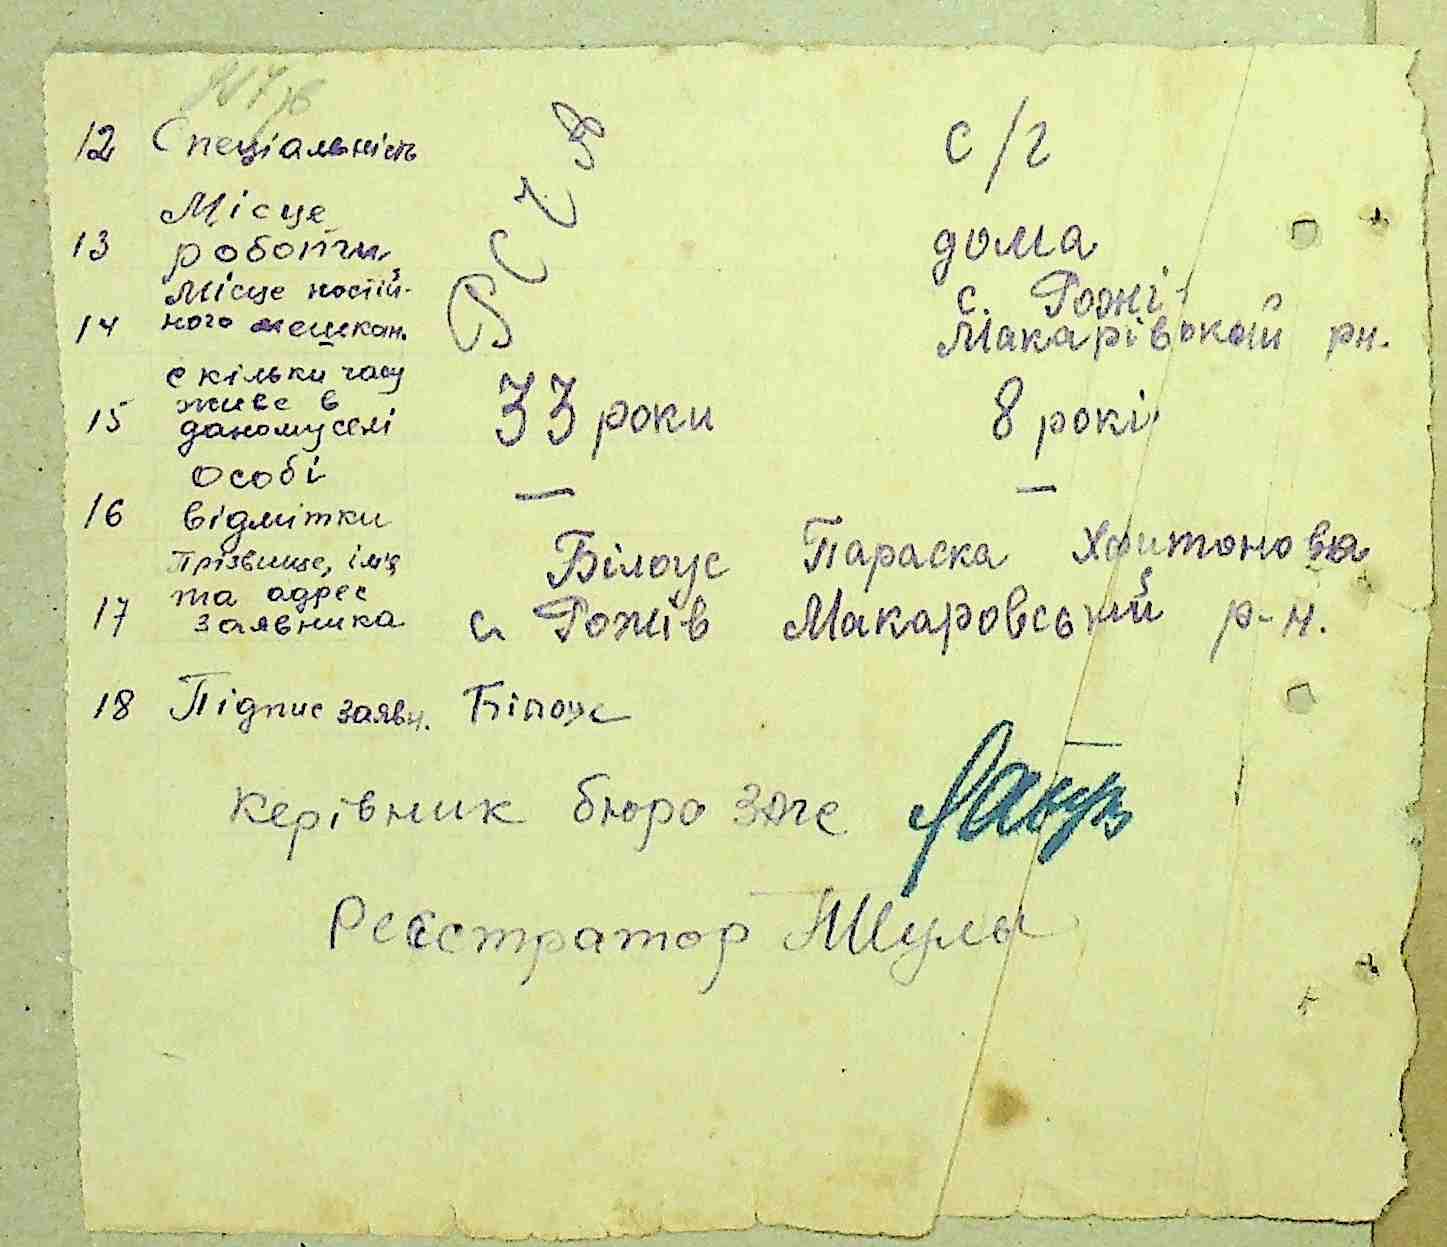 12 Спеціальність с/г
Місце
13 роботи дома
Місце постій- с. Рожі-
14 ного мешкан. Макарівской рн.
Скільки часу
живе в
15 даному селі 33 роки 8 років
Особі
16 відмітки — —
Прізвище, ім'я Білоус Параска Харитонова
та адрес
17 заявника с. Рожів Макаровський р-н.
18 Підпис заявн. Білоус
Керівник бюро ЗАГС
Реєстратор